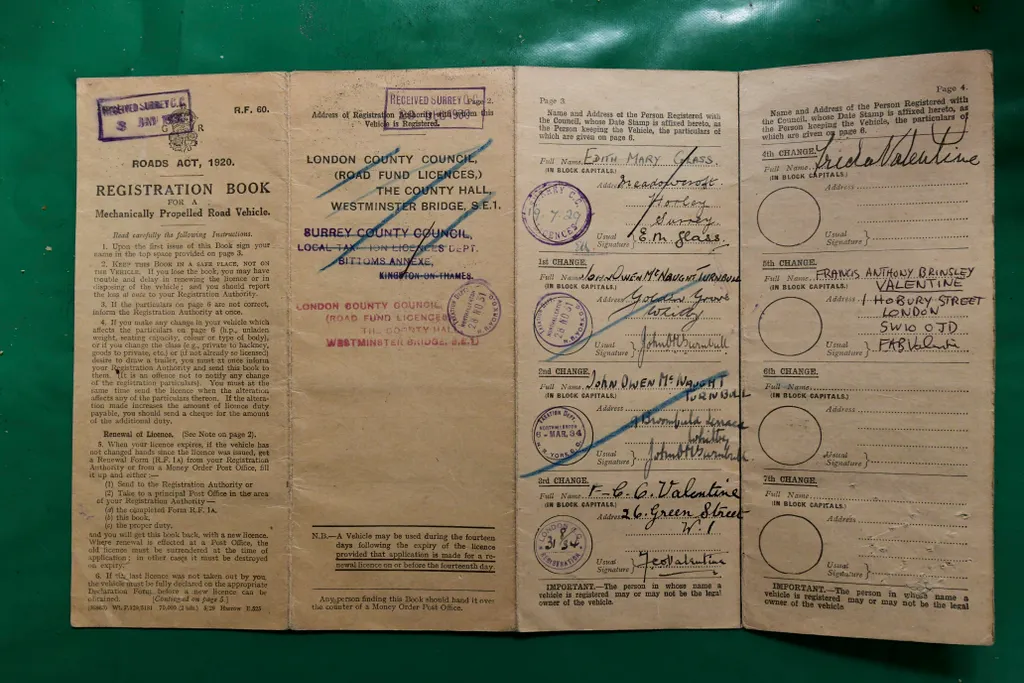 RECEIVED SURREY C.C.
R.F. 60.
G R
ROADS ACT, 1920.
REGISTRATION BOOK
FOR A
Mechanically Propelled Road Vehicle.
Read carefully the following Instructions.
1. Upon the first issue of this Book sign your name
in the top space provided on page 3.
2. KEEP THIS BOOK IN A SAFE PLACE, NOT ON
THE VEHICLE. If you lose the book, you may have
trouble and delay in renewing the licence or in
disposing of the vehicle; and you should report
the loss at once to your Registration Authority.
3. If the particulars on page 6 are not correct,
inform the Registration Authority at once.
4. If you make any change in your vehicle which
affects the particulars on page 6 (h.p., unladen
weight, seating capacity, colour or type of body),
or if you change the class (e.g., private to hackney,
goods to private, etc.) or (if not already so licensed)
desire to draw a trailer, you must at once inform
your Registration Authority and send this book to
them. (It is an offence not to notify any change
of the registration particulars). You must at the
same time send the licence when the alteration
affects any of the particulars thereon. If the altera-
tion made increases the amount of licence duty
payable, you should send a cheque for the amount
of the additional duty.
Renewal of Licence. (See Note on page 2).
5. When your licence expires, if the vehicle has
not changed hands since the licence was issued, get
a Renewal Form (R.F. 1A) from your Registration
Authority or from a Money Order Post Office, fill
it up and either:—
(1) Send to the Registration Authority or
(2) Take to a principal Post Office in the area
of your Registration Authority—
(a) the completed Form R.F. 1A.
(b) this book,
(c) the proper duty,
and you will get this book back, with a new licence.
Where renewal is effected at a Post Office, the
old licence must be surrendered at the time of
application; in other cases it must be destroyed
on expiry.
6. If the last licence was not taken out by you,
the vehicle must be fully declared on the appropriate
Declaration Form before a new licence can be
obtained. (Continued on page 5.)
RECEIVED SURREY C.C.
Page 2.
Address of Registration Authority with whom this
Vehicle is Registered.
LONDON COUNTY COUNCIL,
(ROAD FUND LICENCES,)
THE COUNTY HALL,
WESTMINSTER BRIDGE, S.E.1.
SURREY COUNTY COUNCIL,
LOCAL TAXATION LICENCES DEPT.
BITTOMS ANNEXE,
KINGSTON-ON-THAMES.
LONDON COUNTY COUNCIL,
(ROAD FUND LICENCES)
THE COUNTY HALL
WESTMINSTER BRIDGE, S.E.1
N.B.—A Vehicle may be used during the fourteen
days following the expiry of the licence
provided that application is made for a re-
newal licence on or before the fourteenth day.
Any person finding this Book should hand it over
the counter of a Money Order Post Office.
Page 3.
Name and Address of the Person Registered with
the Council, whose Date Stamp is affixed hereto,
as the Person keeping the Vehicle, the particulars
of which are given on page 6.
Full Name EDITH MARY GLASS.
(IN BLOCK CAPITALS)
Address Meadowcroft
Hooley
Surrey
Usual
Signature } E M Glass.
1st CHANGE.
Full Name JOHN OWEN McNAUGHT TURNBULL
(IN BLOCK CAPITALS)
Address
Whitby
28 NO 31
Usual
Signature }
2nd CHANGE.
Full Name JOHN OWEN McNAUGHT
TURNBULL
(IN BLOCK CAPITALS)
Address Terrace
Whitby
6 - MAR. 34
Usual
Signature }
3rd CHANGE.
Full Name F. C. O. Valentine
(IN BLOCK CAPITALS)
Address 26. Green Street
W.1
Usual
Signature } Valentine
IMPORTANT.—The person in whose name a
vehicle is registered may or may not be the legal
owner of the vehicle.
Page 4.
Name and Address of the Person Registered with
the Council, whose Date Stamp is affixed hereto, as
the Person keeping the Vehicle, the particulars of
which are given on page 6.
4th CHANGE.
Full Name Frida Valentine
(IN BLOCK CAPITALS)
Address
Usual
Signature }
5th CHANGE.
Full Name FRANCIS ANTHONY BRINSLEY
VALENTINE
(IN BLOCK CAPITALS)
Address 1 HOBURY STREET
LONDON
SW10 0JD
Usual
Signature } FAB Valentine
6th CHANGE.
Full Name
(IN BLOCK CAPITALS)
Address
Usual
Signature }
7th CHANGE.
Full Name
(IN BLOCK CAPITALS)
Address
Usual
Signature }
IMPORTANT.—The person in whose name a
vehicle is registered may or may not be the legal
owner of the vehicle.